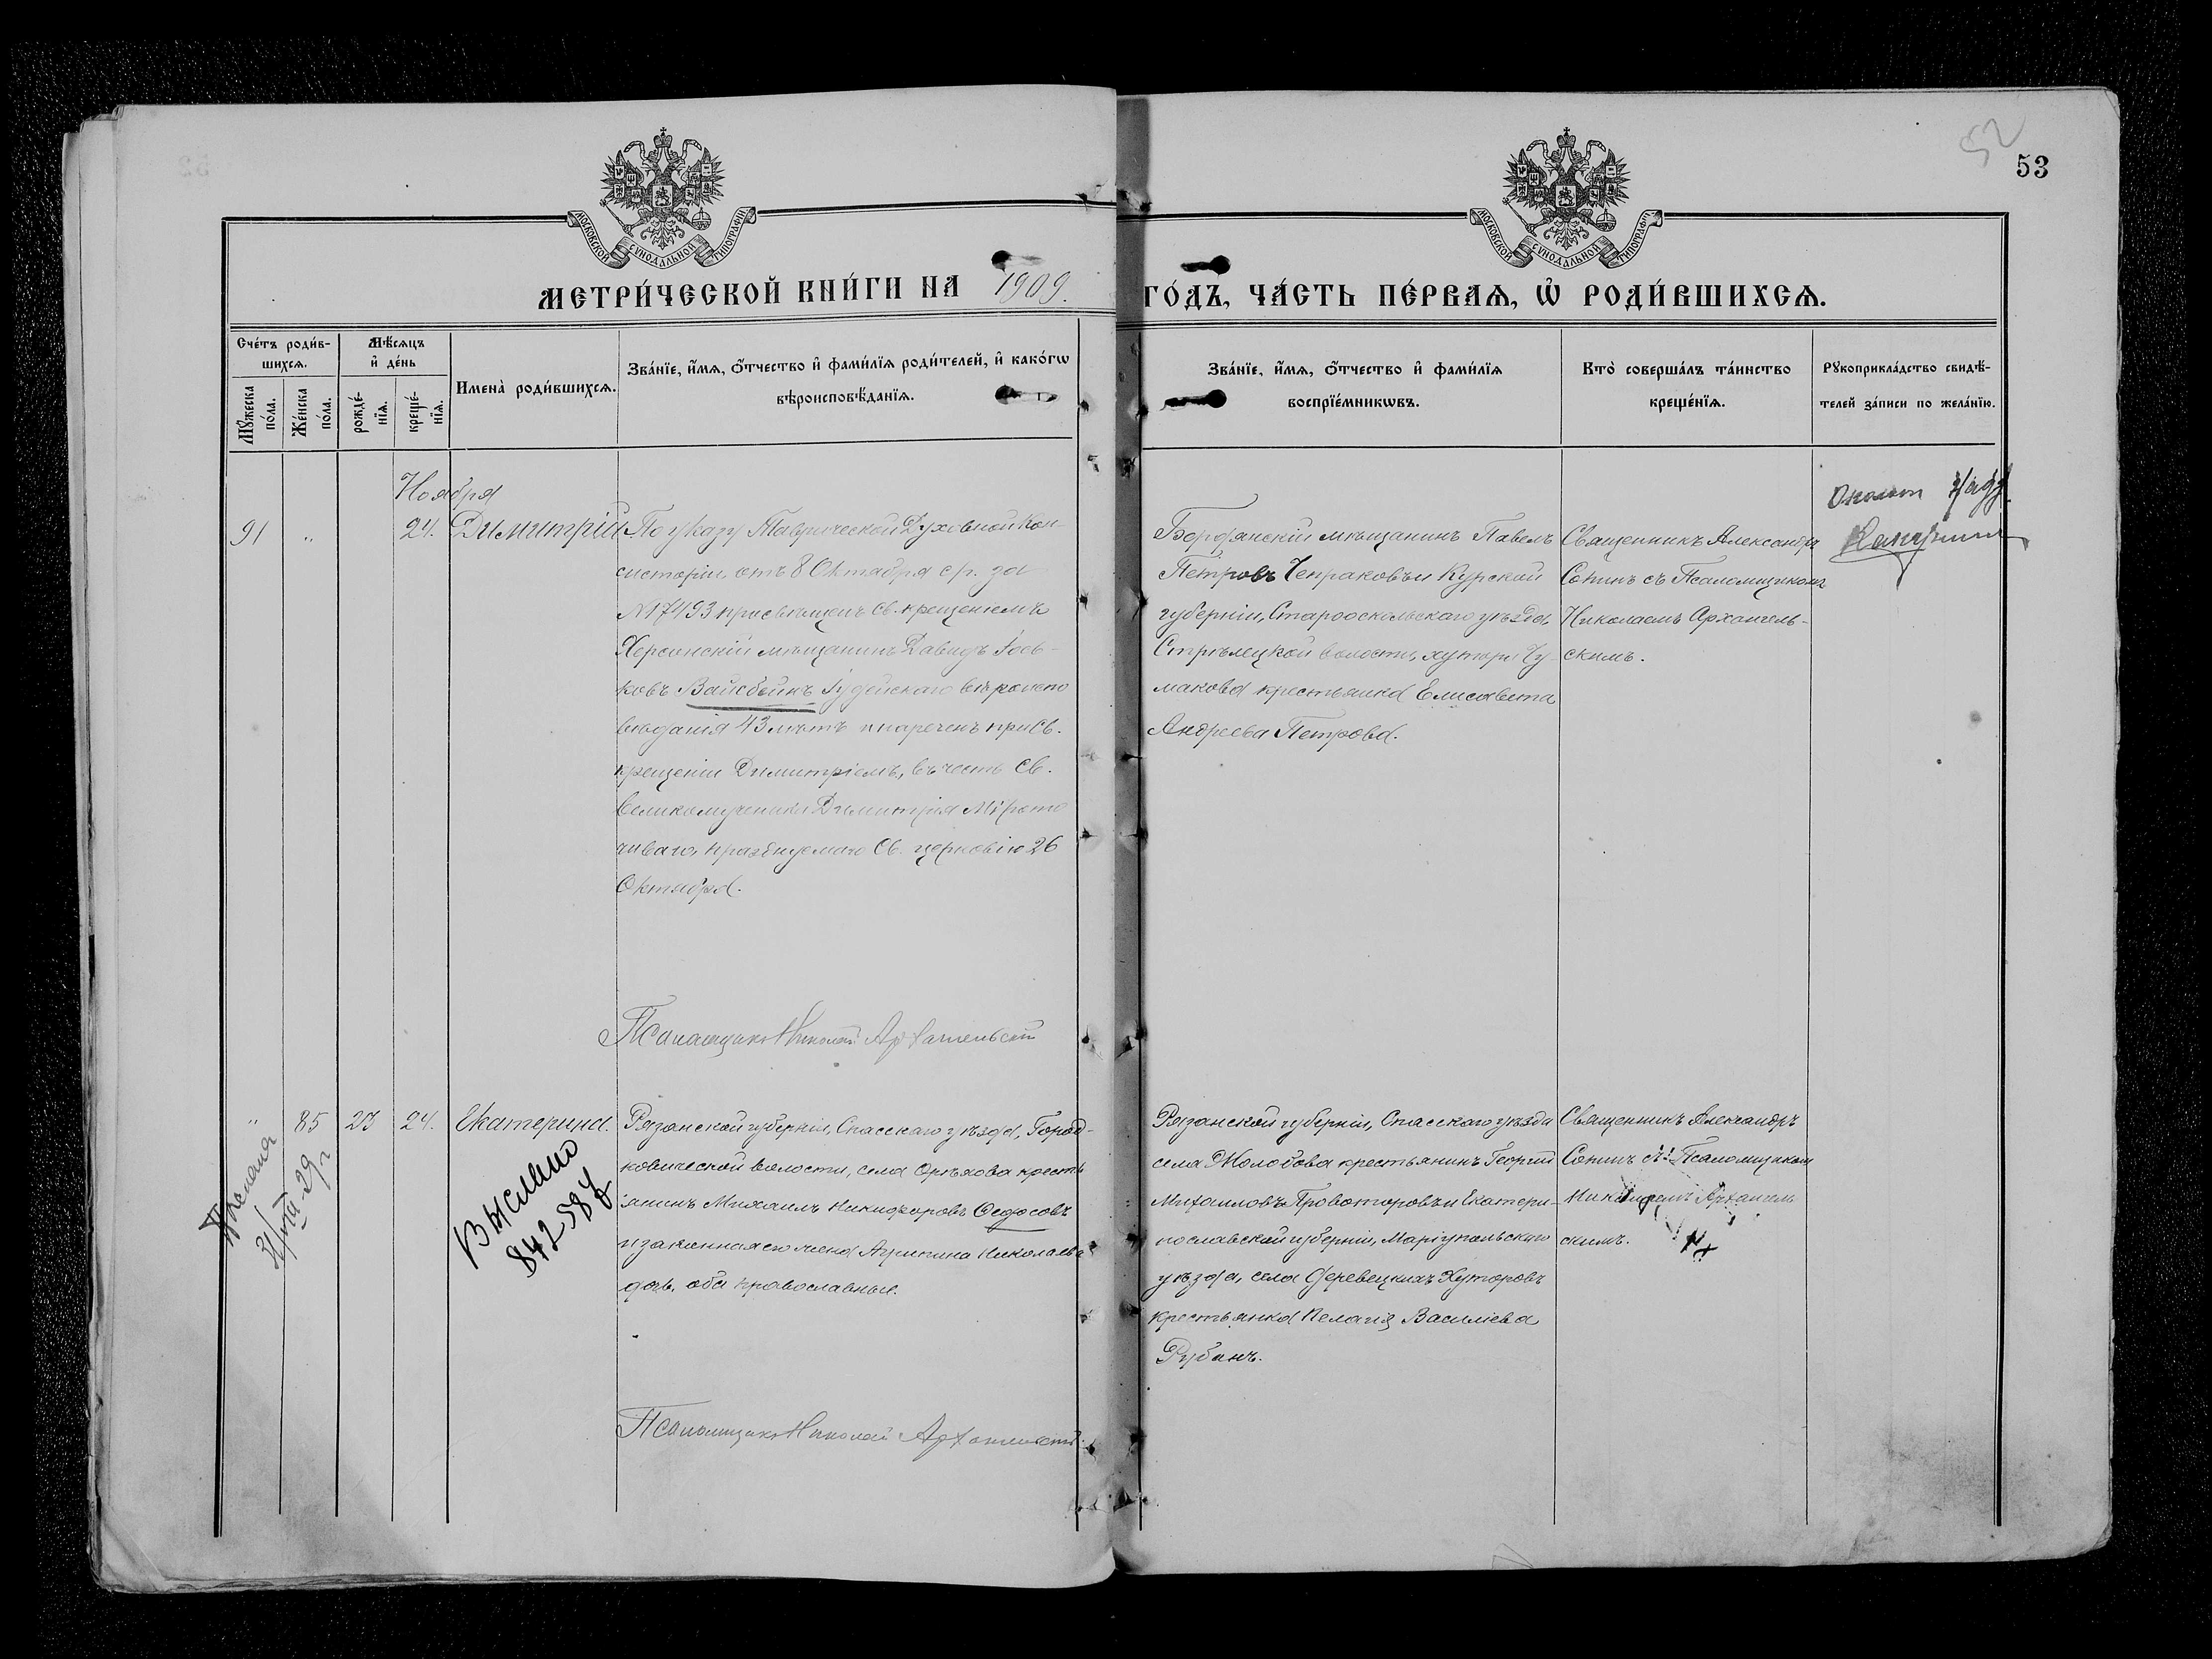 52
53
МОСКОВСКОЙ СѴНОДАЛЬНОЙ ТИПОГРАФІИ
МОСКОВСКОЙ СѴНОДАЛЬНОЙ ТИПОГРАФІИ
МЕТРИ́ЧЕСКОЙ КНИ́ГИ НА 1909.
ГО́ДЪ, ЧА́СТЬ ПЕ́РВАѦ, Ѽ РОДИ́ВШИХСѦ.
Сче́тъ роди́в-
шихсѧ.
Мꙋ́жеска
по́ла.
Же́нска
по́ла.
Мѣ́сѧцъ
и҆ де́нь
рожде́-
нїѧ.
креще́-
нїѧ.
Имена̀ роди́вшихсѧ.
Зва́нїе, и҆́мѧ, ѻ҆́тчество и҆ фами́лїѧ роди́телей, и҆ како́гѡ
вѣроисповѣ́данїѧ.
Зва́нїе, и҆́мѧ, ѻ҆́тчество и҆ фами́лїѧ
воспрїе́мникѡвъ.
Кто̀ соверша́лъ та́инство
креще́нїѧ.
Рꙋкоприкла́дство свидѣ́-
телей за́писи по жела́нїю.
Ноября
91 " 24. Димитрій
По указу Таврической Духовной Кон-
систоріи отъ 8 Октября с/г. за
№17493 просвѣщенъ Св. крещеніемъ
Херсонскій мѣщанинъ Давидъ Іось-
ковъ Вайсбейнъ Іудейскаго вѣроиспо
вѣданія 43 лѣтъ и нареченъ при Св.
крещеніи Димитріемъ, въ честь Св.
Великомученика Димитрія Мѵрото
чиваго, празднуемаго Св. церковію 26
Октября.
Псаломщикъ Николай Архангельскій
Бердянскій мѣщанинъ Павелъ
Петровъ Чепраковъ и Курской
губерніи, Старооскольскаго уѣзда
Стрѣлецкой волости, хутора Чу-
макова крестьянка Елисавета
Андреева Петрова.
Священникъ Александръ
Сопинъ съ Псаломщикомъ
Николаемъ Архангель-
скимъ.
" 85 23 24. Екатерина.
Рязанской губерніи, Спасскаго уѣзда, Город-
ковической волости, села Орѣхова кресть
янинъ Михаилъ Никифоровъ Ѳедосовъ
и законная его жена Агрипина Николаева
оба православные.
Псаломщикъ Николай Архангельскій
Рязанской губерніи, Спасскаго уѣзда
села Жолобова крестьянинъ Георгій
Михаиловъ Провоторовъ и Екатери-
нославской губерніи, Маріупольскаго
уѣзда, села Деревецкихъ Хуторовъ
крестьянка Пелагія Василіева
Рубанъ.
Священникъ Александръ
Сопинъ съ Псаломщикомъ
Николаемъ Архангель
скимъ.
842584